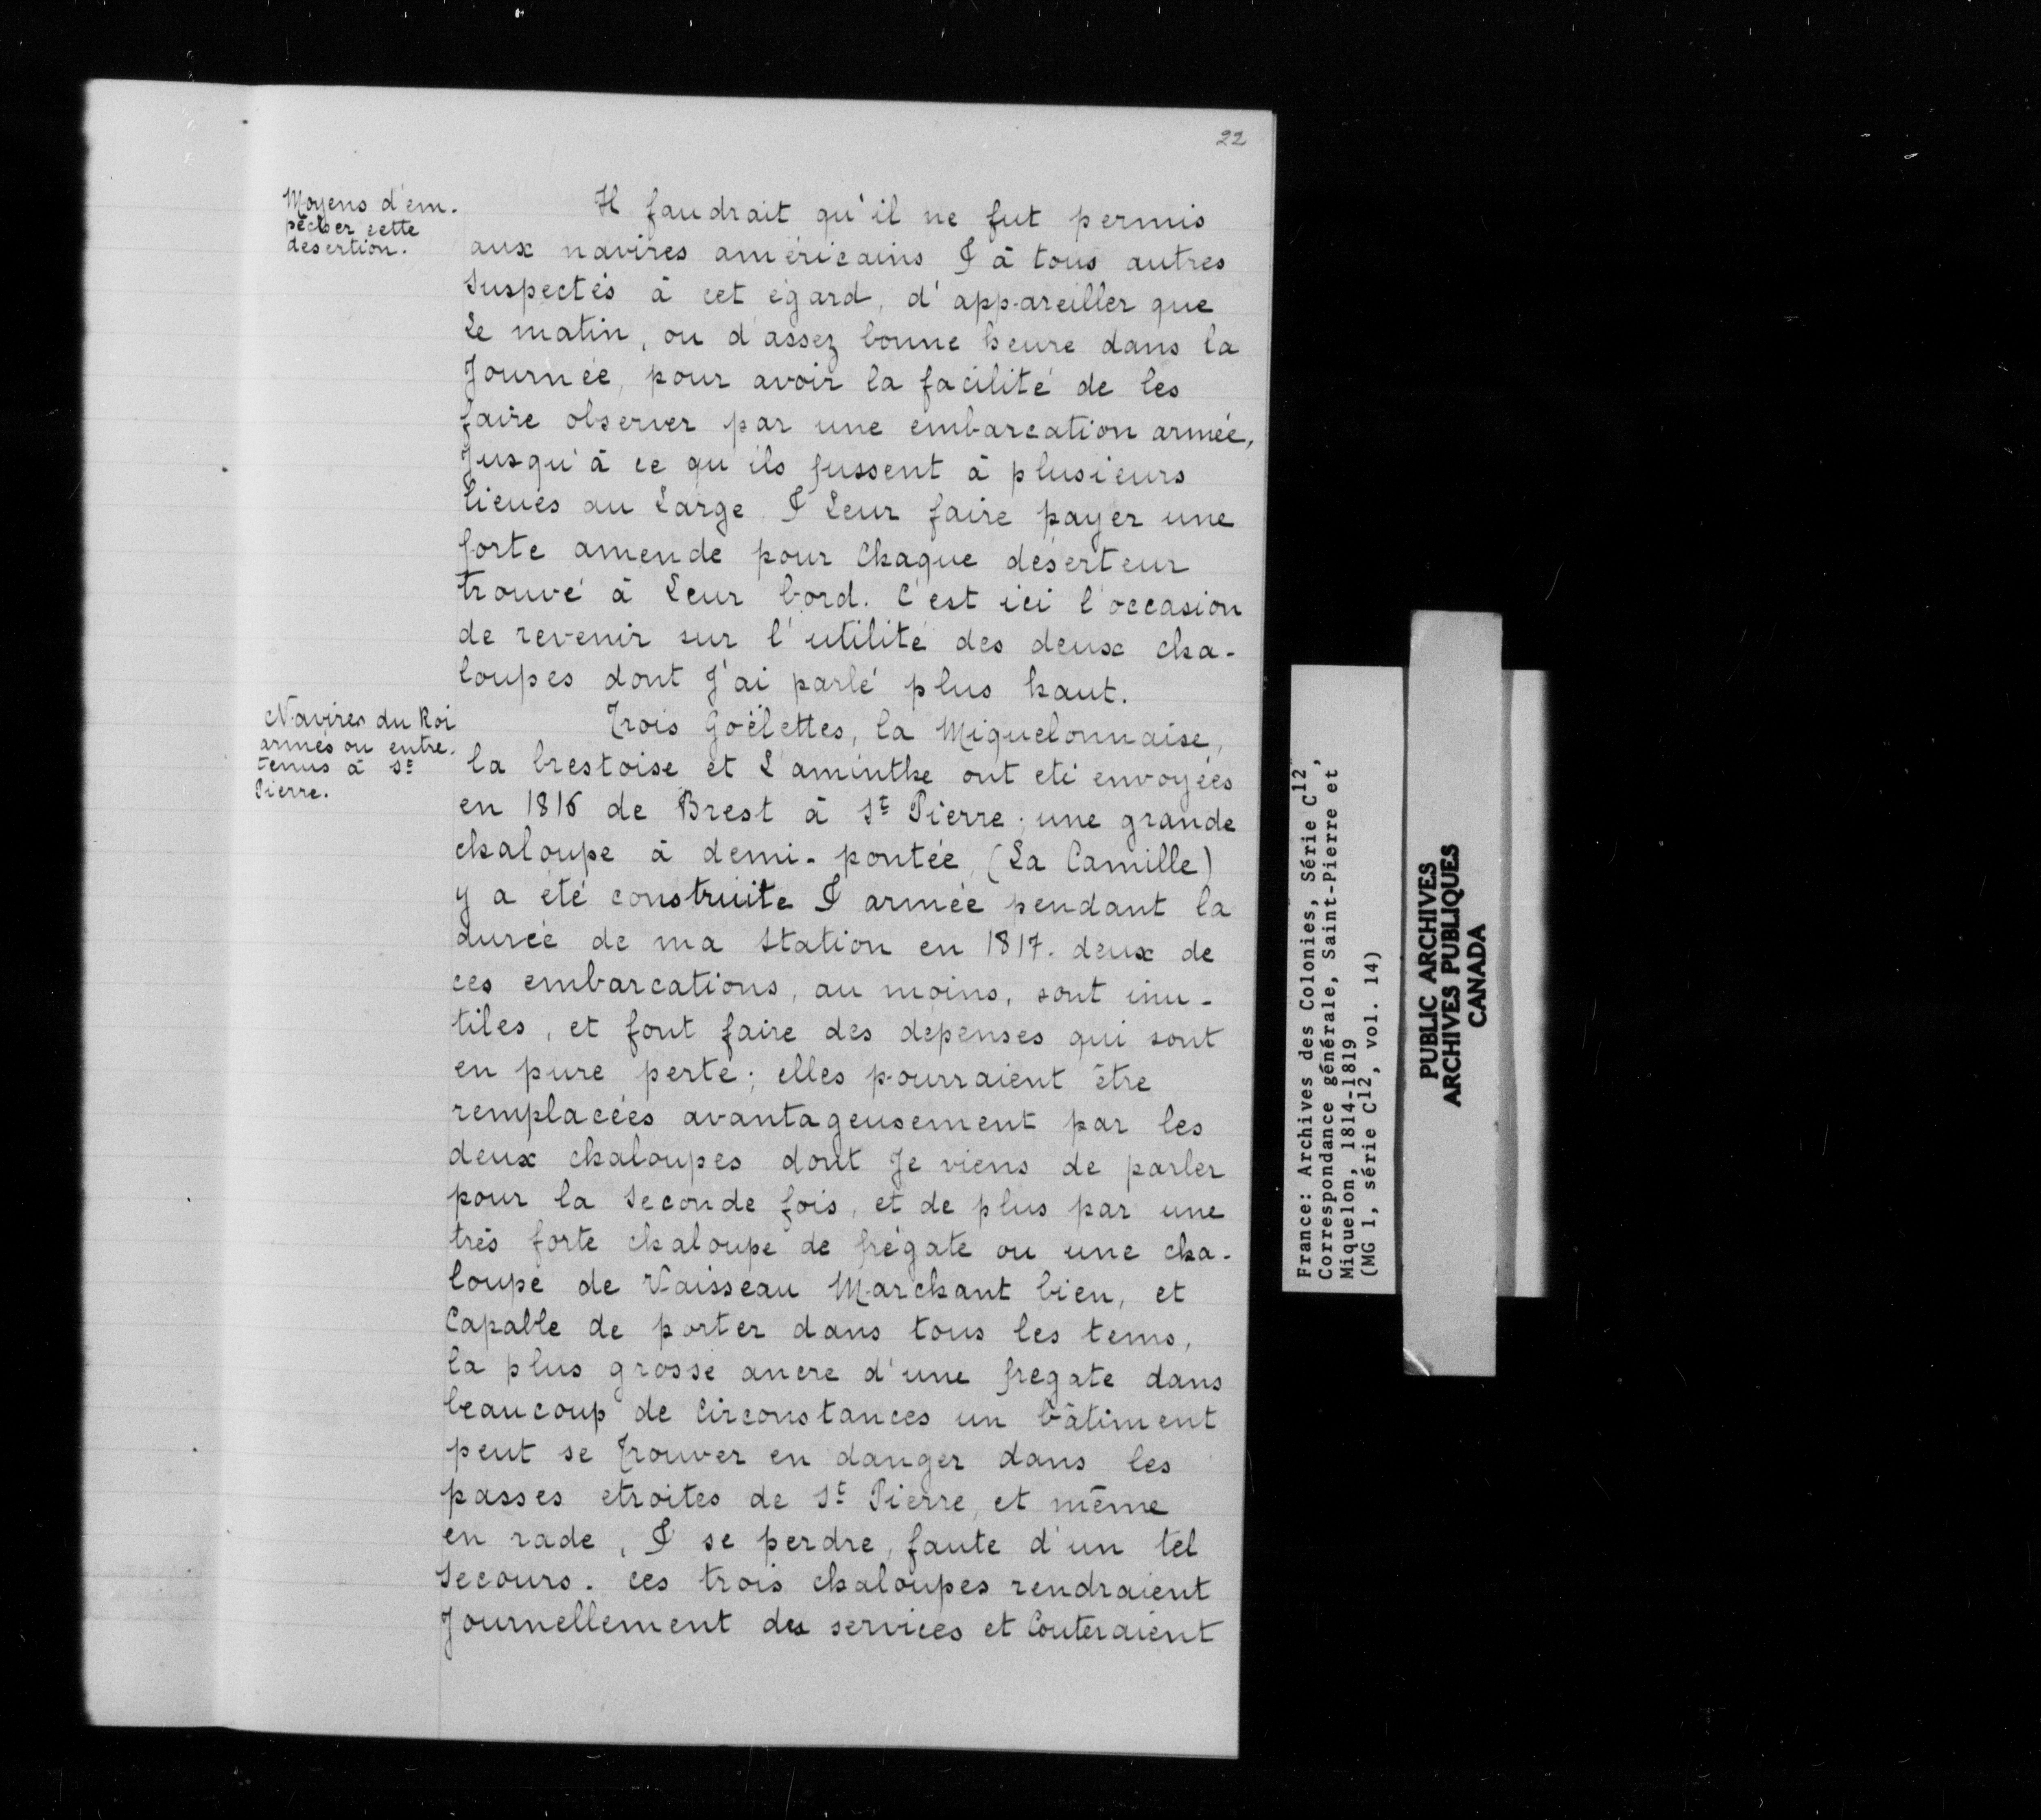 22
Moyens d'em-
pêcher cette
desertion.
Il faudrait qu'il ne fut permis
aux navires américains & à tous autres
Suspectés à cet égard, d'appareiller que
Le matin, ou d'assez bonne heure dans la
Journée, pour avoir la facilité de les
faire observer par une embarcation armée,
Jusqu'à ce qu'ils fussent à plusieurs
lieues au Large & Leur faire payer une
forte amende pour Chaque déserteur
trouvé à Leur bord. C'est ici l'occasion
de revenir sur l'utilité des deux cha-
loupes dont J'ai parlé plus haut.
Navires du Roi
armés ou entre-
tenus à St
Pierre.
Trois Goëlettes, la Miquelonnaise,
la brestoise et L'aminthe ont eté envoyées
en 1816 de Brest à St Pierre; une grande
chaloupe à demi-pontée, (La Camille)
y a été construite & armée pendant la
durée de ma Station en 1817. deux de
ces embarcations, au moins, sont inu-
tiles, et font faire des dépenses qui sont
en pure perte; elles pourraient être
remplacées avantageusement par les
deux chaloupes dont Je viens de parler
pour la Seconde fois, et de plus par une
très forte chaloupe de frégate ou une cha-
loupe de Vaisseau Marchant bien, et
Capable de porter dans tous les tems,
la plus grosse ancre d'une fregate dans
beaucoup de Circonstances un bâtiment
peut se Trouver en danger dans les
passes etroites de St Pierre, et même
en rade, & se perdre, faute d'un tel
Secours. ces trois chaloupes rendraient
Journellement des services et Couteraient
France: Archives des Colonies, Série C12,
Correspondance générale, Saint-Pierre et
Miquelon, 1814-1819
(MG 1, série C12, vol. 14)
PUBLIC ARCHIVES
ARCHIVES PUBLIQUES
CANADA